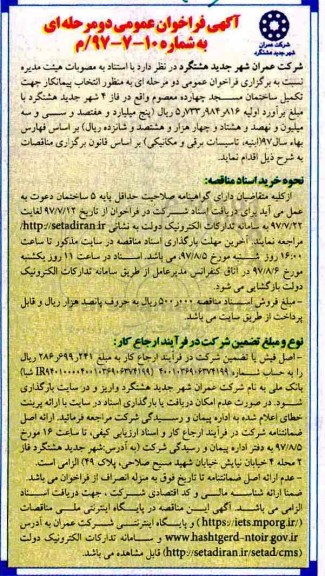 آگهی فراخوان عمومی دو مرحله ای
به شماره ۱۰-۷-۹۷/م
شرکت عمران
شهر جدید هشتگرد
شرکت عمران شهر جدید هشتگرد در نظر دارد با استناد به مصوبات هیئت مدیره
نسبت به برگزاری فراخوان عمومی دو مرحله ای به منظور انتخاب پیمانکار جهت
تکمیل ساختمان مسجد چهارده معصوم واقع در فاز ۴ شهر جدید هشتگرد با
مبلغ برآورد اولیه ۵,۷۳۳,۹۸۴,۸۱۶ ریال (پنج میلیارد و هفتصد و سی و سه
میلیون و نهصد و هشتاد و چهار هزار و هشتصد و شانزده ریال) بر اساس فهارس
بهاء سال ۹۷ (ابنیه، تاسیسات برقی و مکانیکی) بر اساس قانون برگزاری مناقصات
به شرح ذیل اقدام نماید.
نحوه خرید اسناد مناقصه:
از کلیه متقاضیان دارای گواهینامه صلاحیت حداقل پایه ۵ ساختمان دعوت به
عمل می آید برای دریافت اسناد شرکت در فراخوان از تاریخ ۹۷/۷/۱۲ لغایت
۹۷/۷/۲۲ به سامانه تدارکات الکترونیک دولت به نشانی http://setadiran.ir
مراجعه نمایند. آخرین مهلت بارگذاری اسناد مناقصه در سایت مذکور تا ساعت
۱۶:۰۰ روز شنبه مورخ ۹۷/۸/۵ می باشد. اسناد در ساعت ۱۱ روز یکشنبه
مورخ ۹۷/۸/۶ در اتاق کنفرانس مدیرعامل از طریق سامانه تدارکات الکترونیک
دولت بازگشایی می شود.
- مبلغ فروش اسناد مناقصه ۵۰۰,۰۰۰ ریال به حروف پانصد هزار ریال و قابل
پرداخت از طریق سایت می باشد.
نوع و مبلغ تضمین شرکت در فرآیند ارجاع کار:
- اصل فیش یا تضمین شرکت در فرآیند ارجاع کار به مبلغ ۲۸۶,۶۹۹,۲۴۱ ریال
را به حساب شماره ۴۰۰۱۰۳۶۹۰۶۳۷۴۱۹۹ (شبا
بانک ملی به نام شرکت عمران شهر جدید هشتگرد واریز و در سایت بارگذاری
شود. در صورت عدم امکان دریافت یا بارگذاری اسناد در سایت با ارائه پرینت
خطای اعلام شده به اداره پیمان و رسیدگی شرکت مراجعه فرمائید. ارائه اصل
ضمانتنامه شرکت در فرآیند ارجاع کار و اسناد ارزیابی کیفی، تا ساعت ۱۶ مورخ
۹۷/۸/۵ به دفتر اداره پیمان و رسیدگی شرکت (به آدرس: شهر جدید هشتگرد فاز
۲ محله ۴ خیابان نیایش خیابان شهید مسیح صالحی، پلاک ۴۹) الزامی است.
- عدم ارائه اصل ضمانتنامه تا تاریخ فوق به منزله انصراف از فراخوان می باشد.
ضمنا ارائه شناسه مالی و کد اقتصادی شرکت، جهت دریافت اسناد
الزامی می باشد. آگهی این مناقصه در پایگاه اینترنتی ملی مناقصات
(https://iets.mporg.ir/) و پایگاه اینترنتی شرکت عمران به آدرس
www.hashtgerd-ntoir.gov.ir و سامانه تدارکات الکترونیک دولت
(http://setadiran.ir/setad/cms) قابل مشاهده می باشد.